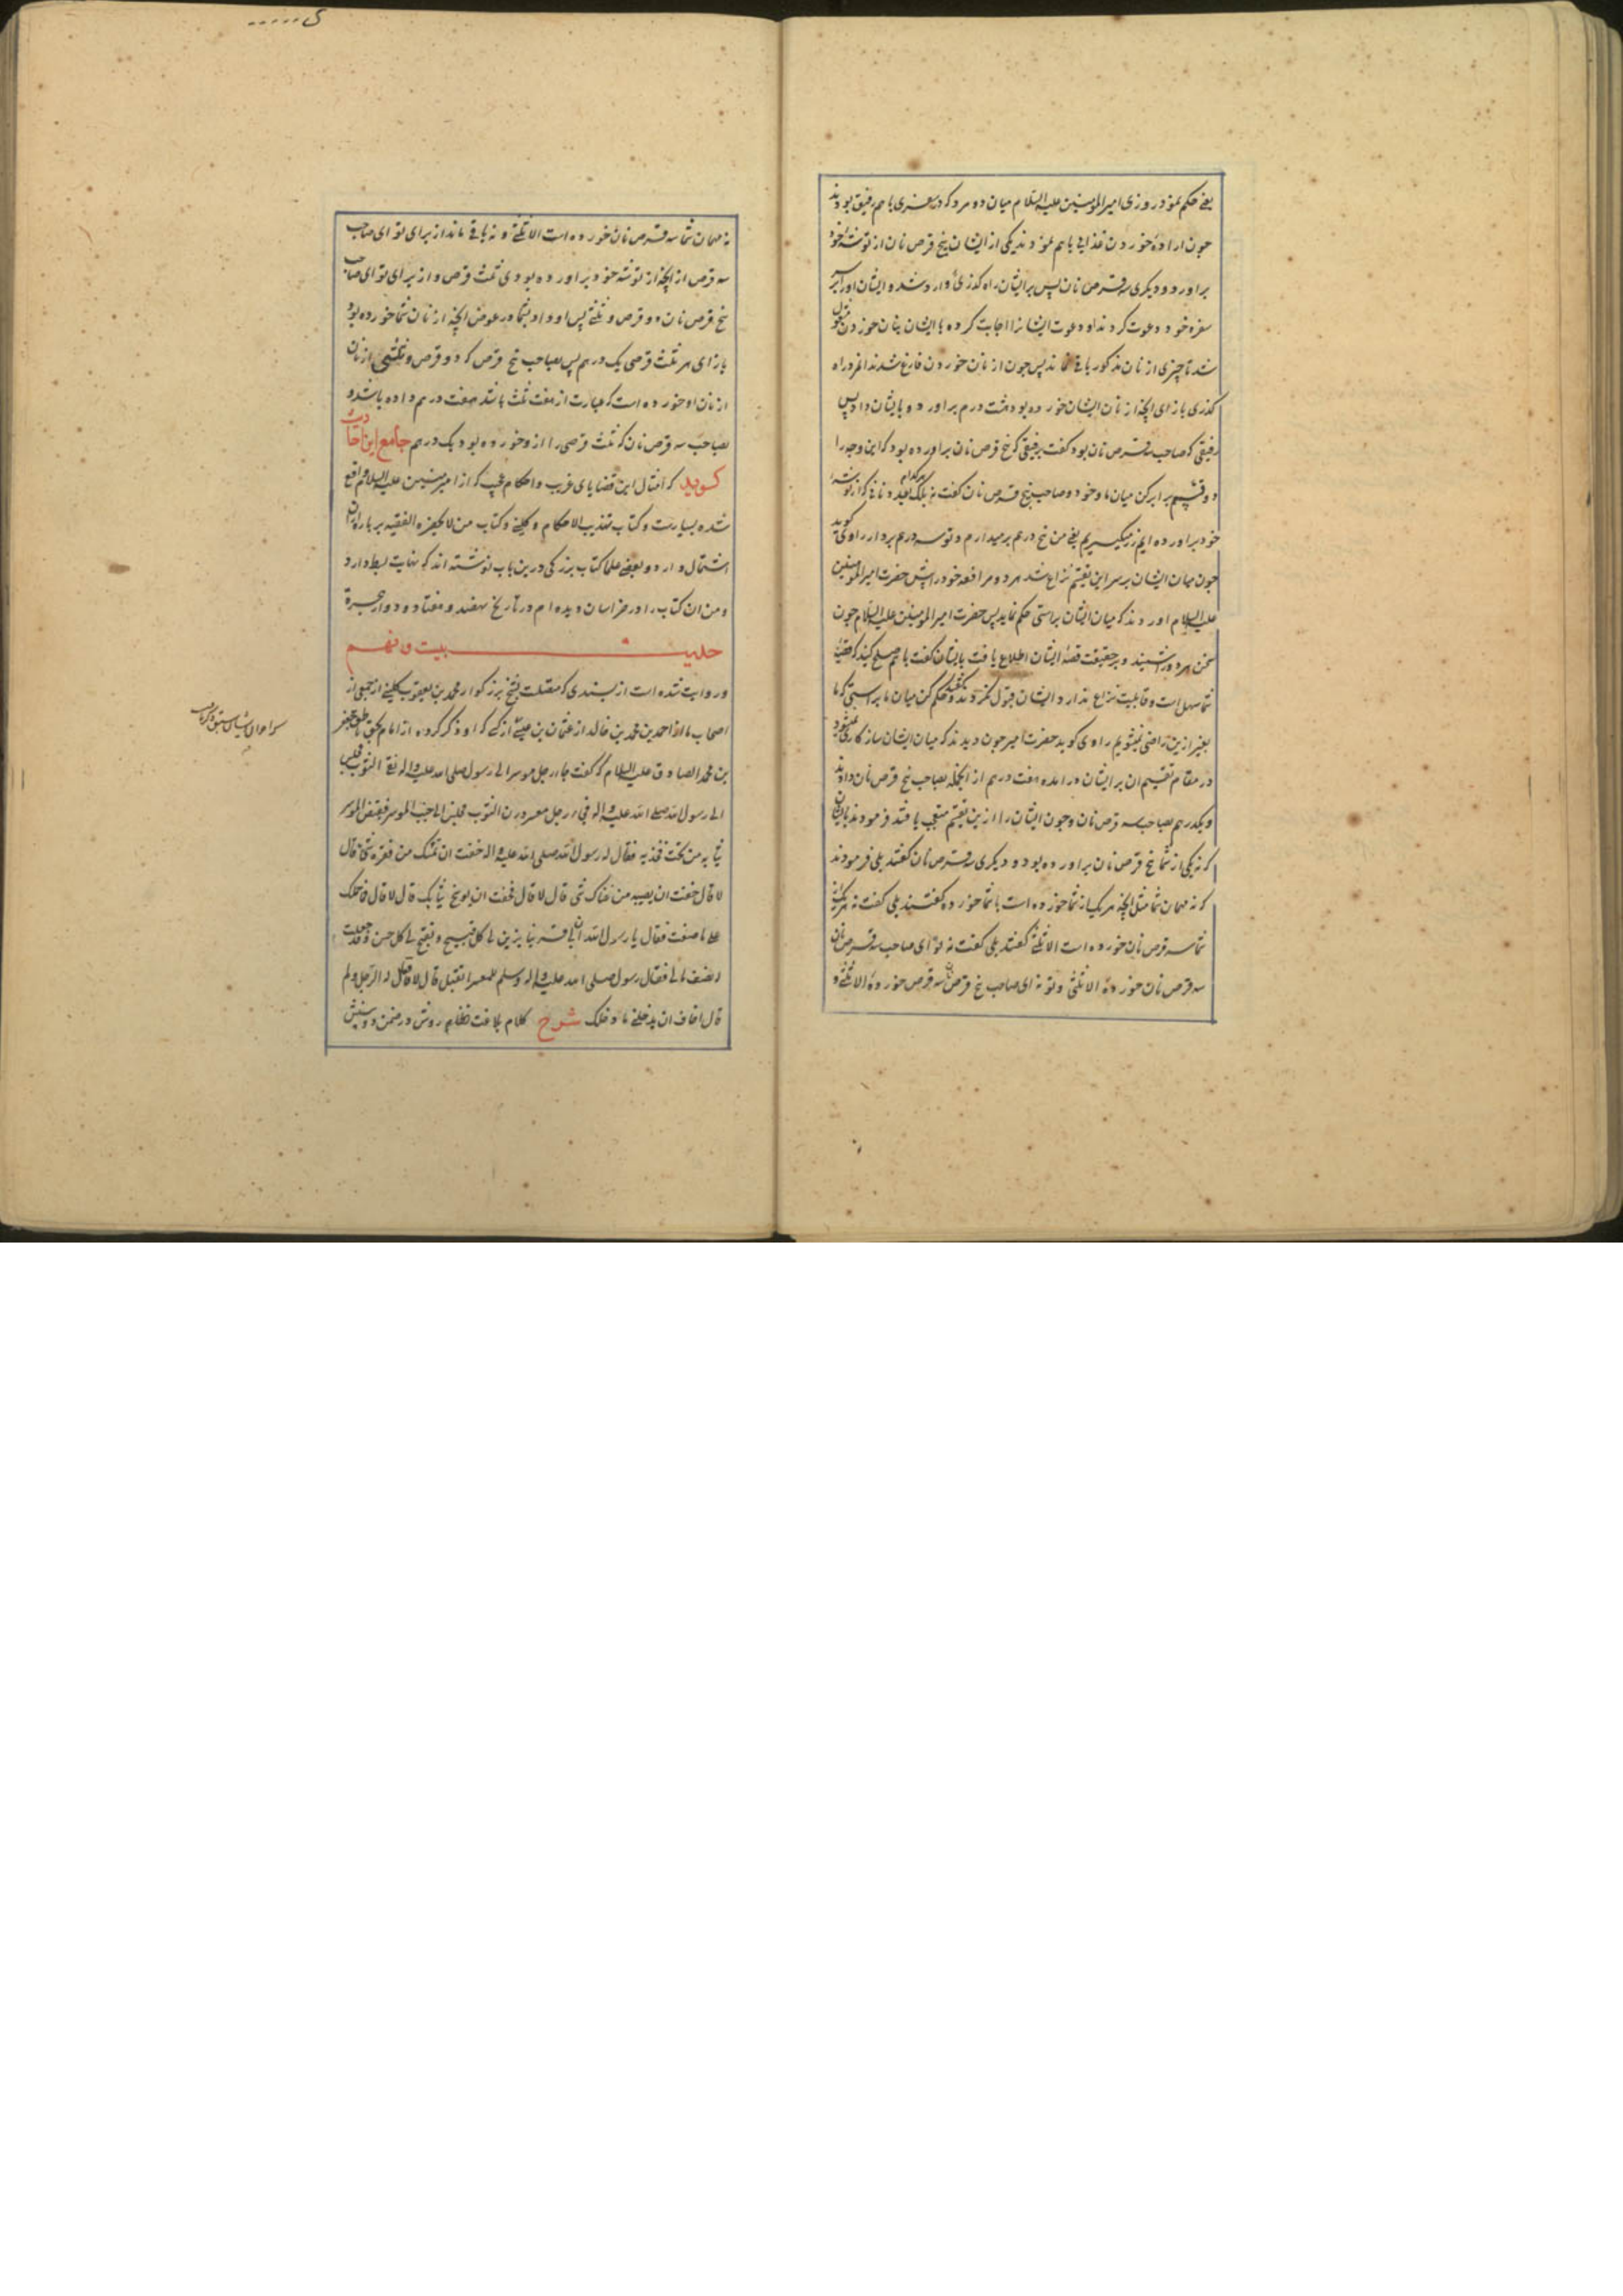 یعنی حکم نمود روزی امیر المومنین علیه السلام میان دو مرد که در سفری با هم رفیق بودند
چون اراده خوردن غذایی با هم نمودند یکی از ایشان پنج قرص نان از توشه خود
براورد و دیگری سه قرص نان پس بر ایشان راه کذری وارد شد و ایشان اورا بر سر
سفره خود دعوت کردند او دعوت ایشانرا اجابت کرده با ایشان بنان خوردن مشغول
شد تا چیزی از نان مذکور باقی نماند پس چون از نان خوردن فارغ شدند انمرد راه
کذری بازای انچه از نان ایشان خورده بود هشت درم براورد و بایشان داد پس
رفیقی که صاحب سه قرص نان بود کفت برفیقی که پنج قرص نان براورده بود که این وجه را
دو قسم برابر کن میان ما و خود و صاحب پنج قرص نان کفت نه بلکه هرکدام بعدد نانی که از توشه
خود براورده ایم زر میکیریم یعنی من پنج درهم برمیدارم و تو سه درهم بردار راوی کوید
چون میان ایشان بر سر این تقسیم نزاع شد هر دو مرافعه خود را پیش حضرت امیر المومنین
علیه السلام اوردند که میان ایشان براستی حکم نماید پس حضرت امیر المومنین علیه السلام چون
سخن هر دو را شنید و بر حقیقت قصه ایشان اطلاع یافت بایشان کفت با هم صلح کنید که قضیه
شما سهل است و قابلیت نزاع ندارد ایشان قبول نکردند و کفتند حکم کن میان ما براستی که ما
بغیر ازین راضی نمیشویم راوی کوید حضرت امیر چون دیدند که میان ایشان سازکاری نمیشود
در مقام تقسیم ان بر ایشان درامده هفت درهم از انجمله بصاحب پنج قرص نان دادند
و یکدرهم بصاحب سه قرص نان و چون ایشان را ازین تقسیم متعجب یافتند فرمودند بایشان
که نه یکی از شما پنج قرص نان براورده بود و دیکری سه قرص نان کفتند بلی فرمودند
که نه مهمان شما مثل انچه هر یک از شما خورده است با شما خورده کفتند بلی کفت نه هر یک از
شما سه قرص نان خورده است الا ثلثی کفتند بلی کفت نه تو ای صاحب سه قرص نان
سه قرص نان خورده الا ثلثی و تو نه ای صاحب پنج قرص نان سه قرص خورده الا ثلثی و
نه مهمان شما سه قرص نان خورده است الا ثلثی و نه باقی ماند از برای تو ای صاحب
سه قرص از انچه از توشه خود براورده بودی ثلث قرص و از برای تو ای صاحب
پنج قرص نان دو قرص و ثلثی پس او داد بشما در عوض انچه از نان شما خورده بود
بازای هر ثلث قرصی یک درهم پس بصاحب پنج قرص که دو قرص و ثلثی از نان
از نان او خورده است که عبارت از هفت ثلث باشد هفت درهم داده باشد و
بصاحب سه قرص نان که ثلث قرصی را ازو خورده بود یک درهم جامع این احادیث
کوید که امثال این قضایای غریب و احکام عجیب که از امیر المومنین علیه السلام واقع
شده بسیارست و کتاب تهذیب الاحکام و کلینی و کتاب من لا یحضره الفقیه بر پاره ازان
اشتمال دارد و بعضی علما کتاب بزرکی درین باب نوشته اند که نهایت بسط دارد
و من ان کتاب را در خراسان دیده ام در تاریخ نهصد و هفتاد و دو از هجرة
حدیث بیست و نهم
و روایت شده است از بسندی که متصلست بشیخ بزرکوار محمد بن یعقوب کلینی از جمعی از
اصحاب ما از احمد بن محمد بن خالد از عثمان بن عیسی از کسی که او ذکر کرده از امام بحق ناطق جعفر
بن محمد الصادق علیه السلام که کفت جاء رجل موسر الی رسول الله صلی الله علیه واله نقی الثوب فجلس
الی رسول الله صلی الله علیه واله فجاء رجل معسر درن الثوب فجلس الی جنب الموسر فقبض الموسر
ثیابه من تحت فخذیه فقال له رسول الله صلی الله علیه واله خفت ان یمسک من فقره شئ قال
لا قال خفت ان یصیبه من غناک شئ قال لا قال فخفت ان یوسخ ثیابک قال لا قال فما حملک
علی ما صنعت فقال یا رسول الله ان لی قرینا یزین لی کل قبیح و یقبح لی کل حسن و قد جعلت
له نصف مالی فقال رسول الله صلی الله علیه واله وسلم للمعسر اتقبل قال لا فقال له الرجل و لم
قال اخاف ان یدخلنی ما دخلک شرح کلام بلاغت نظام روش در ضمن دو بینش